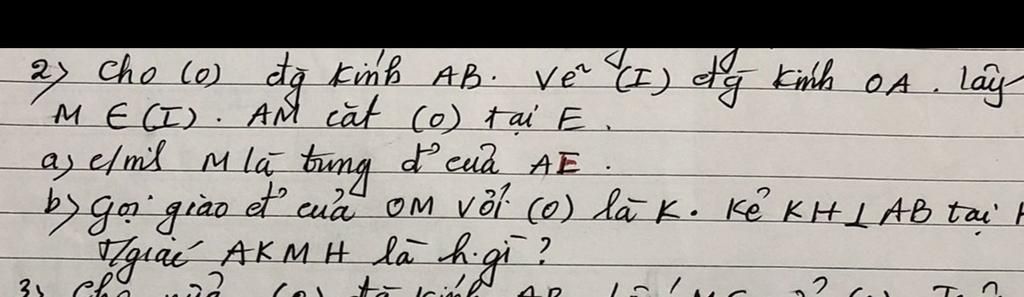 2) Cho (O) đg kính AB. Vẽ (I) đg kính OA. lấy
M ∈ (I). AM cắt (O) tại E.
a) c/m: M là trung đ' của AE.
b) gọi giao đ' của OM với (O) là K. Kẻ KH ⊥ AB tại H
T/giác AKMH là h.gì?
3) Cho nửa (O) đg kính AB